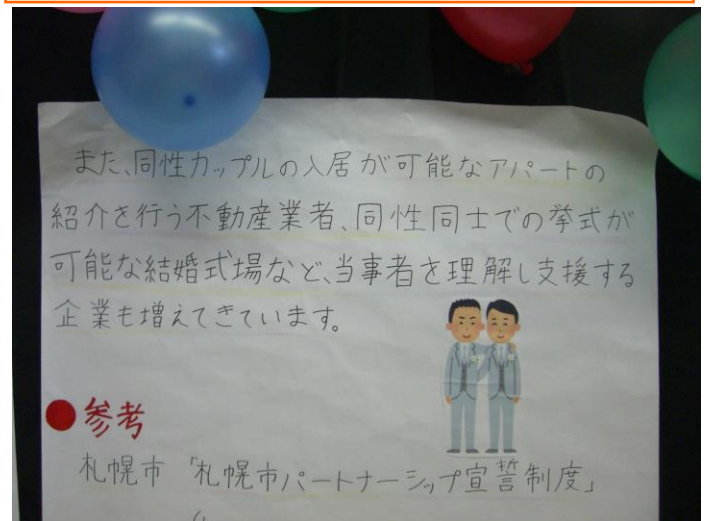 また、同性カップルの入居が可能なアパートの
紹介を行う不動産業者、同性同士での挙式が
可能な結婚式場など、当事者を理解し支援する
企業も増えてきています。
●参考
札幌市「札幌市パートナーシップ宣誓制度」